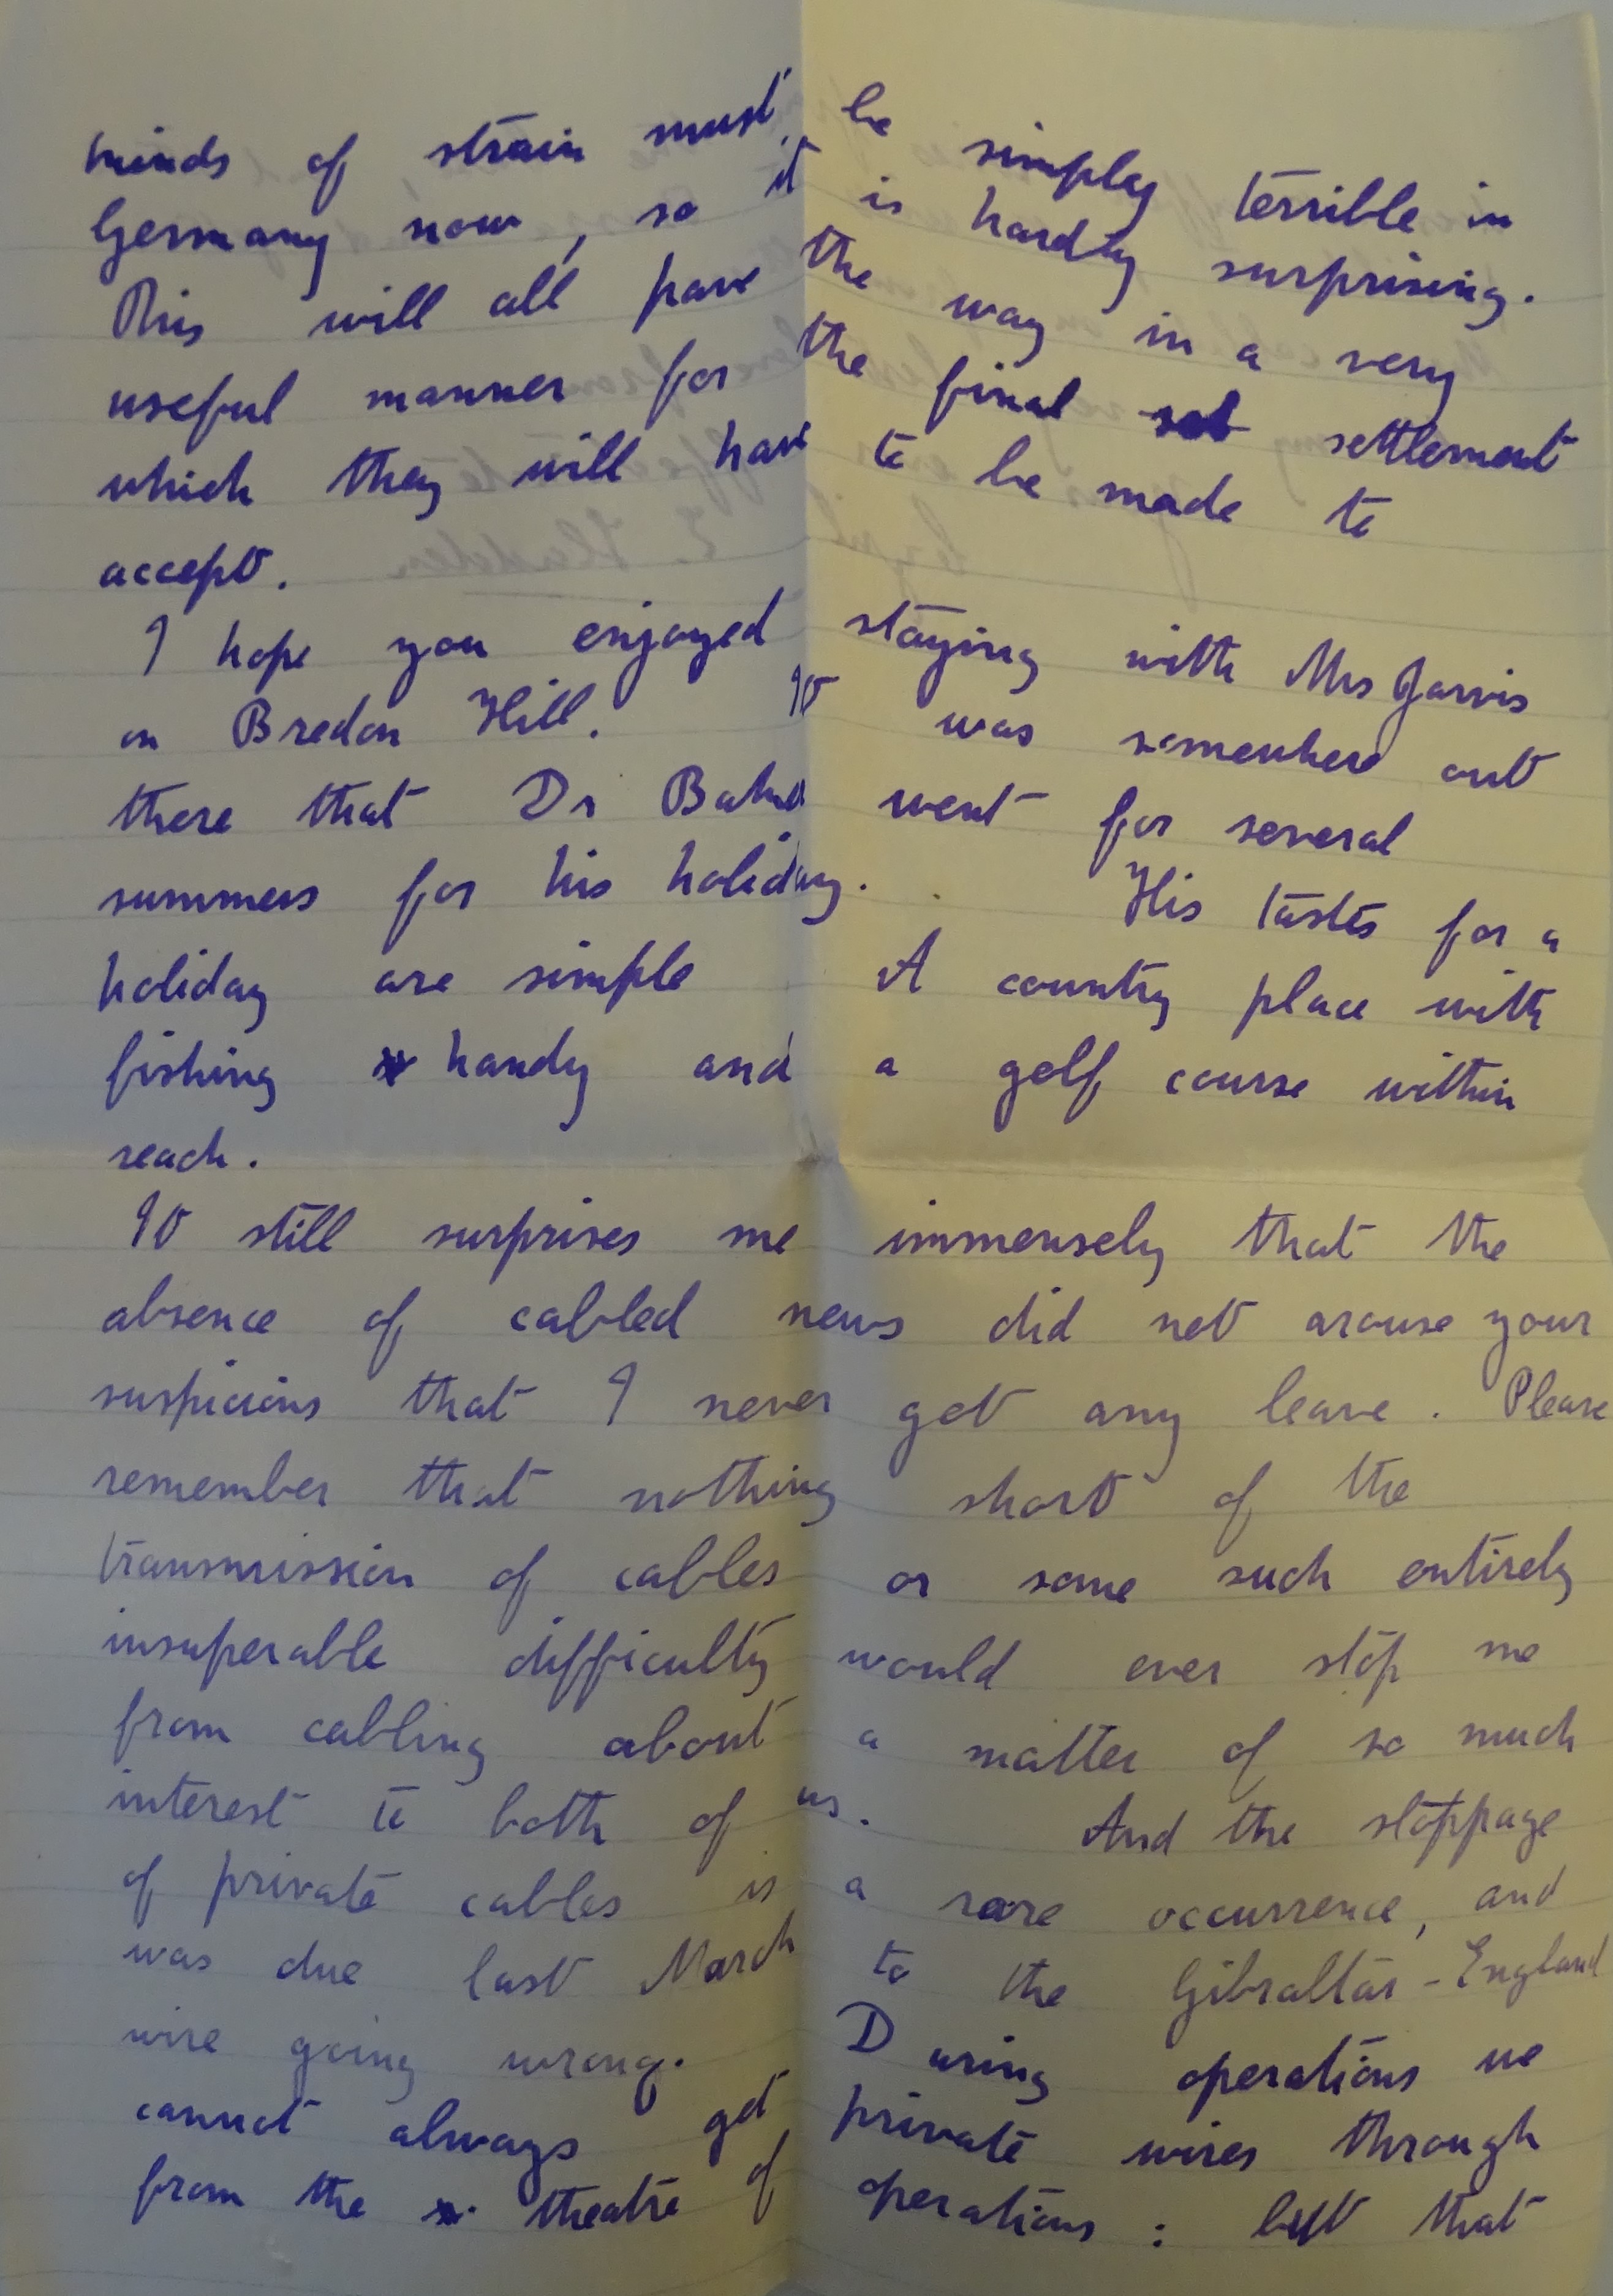 minds of strain must be simply terrible in
Germany now, so it is hardly surprising.
This will all pave the way in a very
useful manner for the final settlement
which they will have to be made to
accept.
I hope you enjoyed staying with Mrs Jarvis
on Bredon Hill. It was somewhere out
there that Dr went for several
summers for his holiday. His tastes for a
holiday are simple A country place with
fishing handy and a golf course within
reach.
It still surprises me immensely that the
absence of cabled news did not arouse your
suspicions that I never got any leave. Please
remember that nothing short of the
transmission of cables or some such entirely
insuperable difficulty would ever stop me
from cabling about a matter of so much
interest to both of us. And the stoppage
of private cables is a rare occurrence, and
was due last March to the Gibraltar-England
wire going wrong. During operations we
cannot always get private wires through
from the theatre of operations: but that